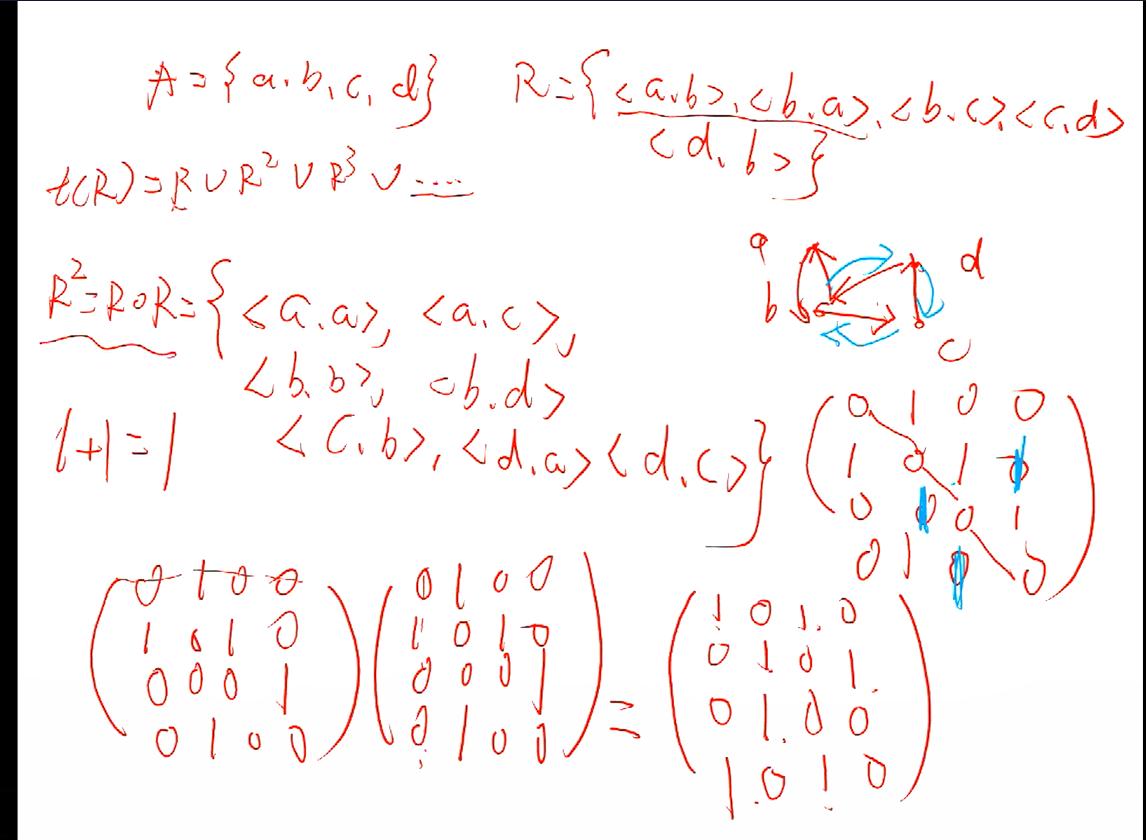 A={a.b,c,d} R={<a.b>,<b.a>,<b.c>,<c,d>
<d,b>}
t(R)=R∪R²∪R³∪.....
R²=R∘R={<a.a>,<a.c>,
<b.b>,<b.d>
<c.b>,<d.a><d.c>}
1+1=1
a
d
b
c
0 1 0 0
1 0 1 0
0 0 0 1
0 1 0 0
0 1 0 0 0 1 0 0 1 0 1 0
1 0 1 0 1 0 1 0 0 1 0 1
0 0 0 1 0 0 0 1 = 0 1 0 0
0 1 0 0 0 1 0 0 1 0 1 0